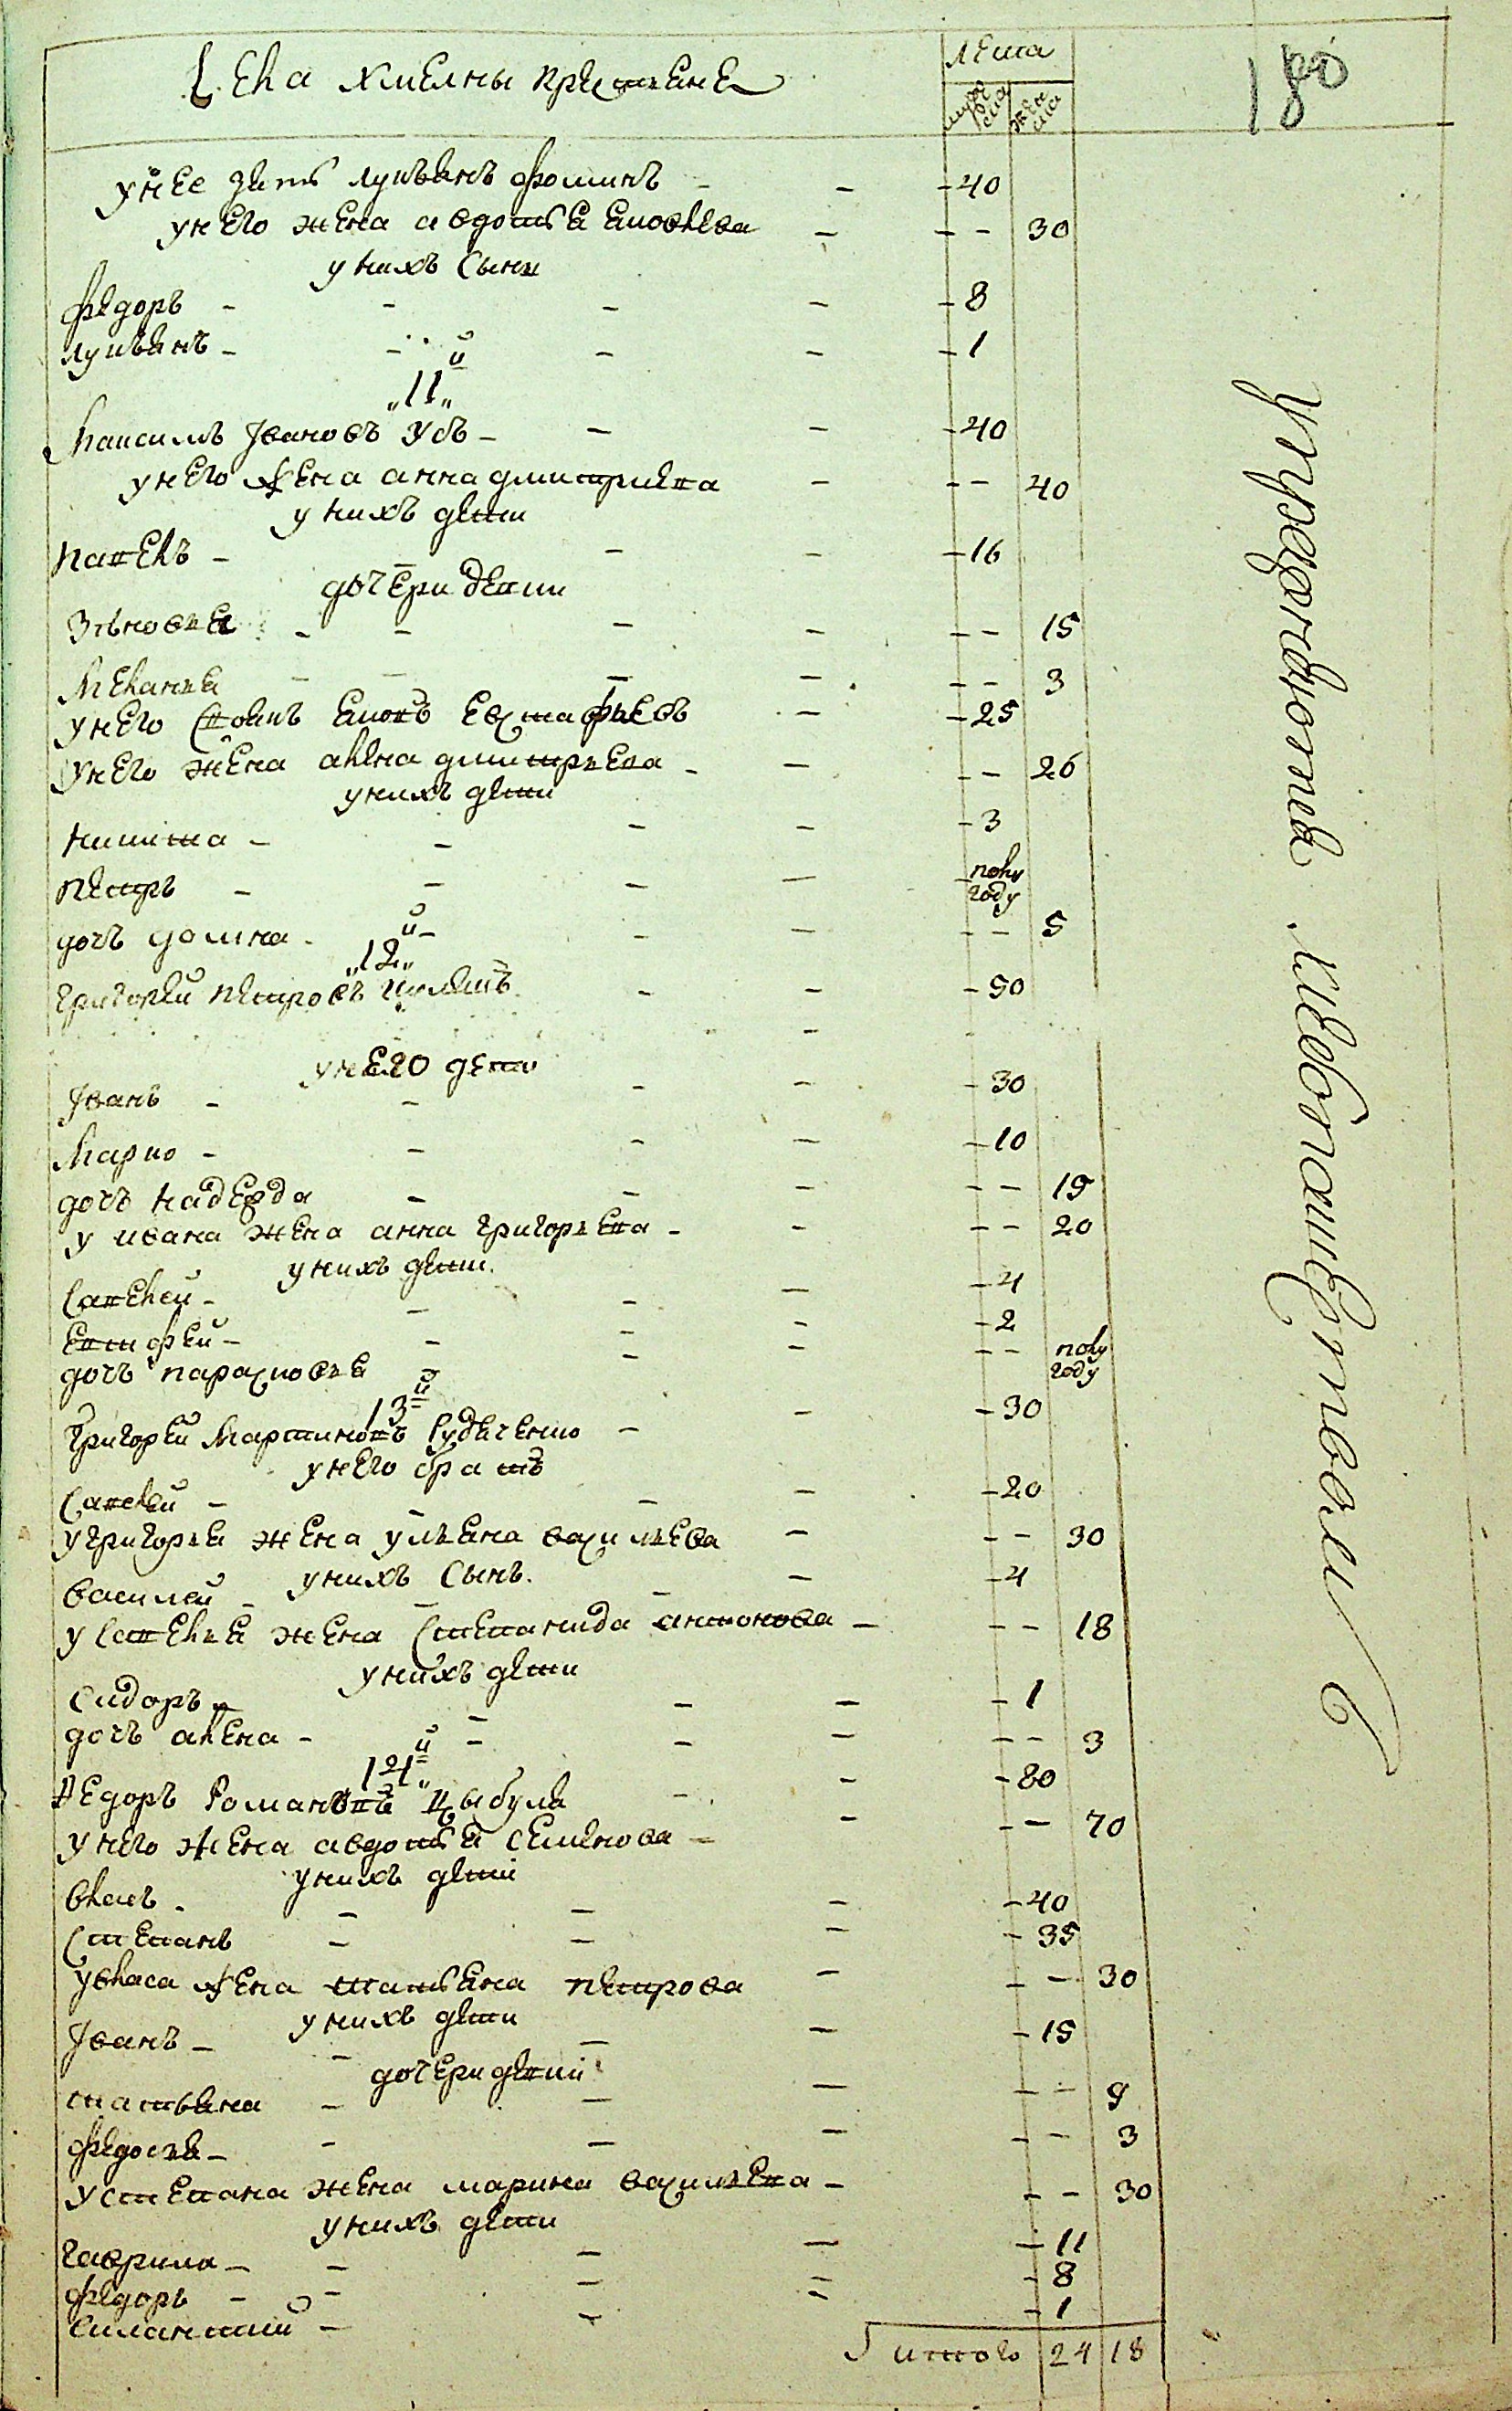 села хмелны крестяне
лета
мужеска
женска
180
у нее зять лукьянъ фоминъ - - - 40
у него жена авдотья яковлева - - - 30
у нихъ сыны
федоръ - - - - - 8
лукьянъ - - - - - 1
„11„ й
максимъ Ивановъ - - - 40
у него жена анна дмитриева - - - 40
у нихъ дети
павелъ - - - - 16
дочери девки
зѣновея - - - - - - 15
меланья - - - - - - 3
у него яковъ евстафьевъ - - 25
у него жена алена дмитрьева - - - - 26
у нихъ дети
никита - - - - - 3
петръ - - - - - полу году
дочь домна - - - - - 5
„12„ й
григорей петровъ - - - 50
у него дети
Иванъ - - - - - 30
марко - - - - - 10
дочь надежда - - - - - 19
у ивана жена анна григорьева - - - - 20
у нихъ дети
савелей - - - - - 4
евтифей - - - - - 2
дочь парасковея - - - - полу году
13 й
григорей мартиновъ рудиченко - - - 30
у него братъ
савелей - - - - - 20
у григорья жена ульяна васильева - - - 30
у нихъ сынъ
василей - - - - - 4
у савелья жена степанида антонова - - - 18
у нихъ дети
сидоръ - - - - - 1
дочь алена - - - - - - 3
14 й
Федоръ романовъ цыбуля - - - 80
у него жена авдотья семенова - - - - 70
у нихъ дети
власъ - - - - - 40
степанъ - - - - 35
у власа жена татьяна петрова - - - 30
у нихъ дети
Иванъ - - - - - 15
дочери девки
татьяна - - - - - 9
федосья - - - - - - 3
у степана жена марина васильева - - - 30
у нихъ дети
гаврила - - - - - 11
федоръ - - - - - 8
силантий - - - 1
итого 24 18